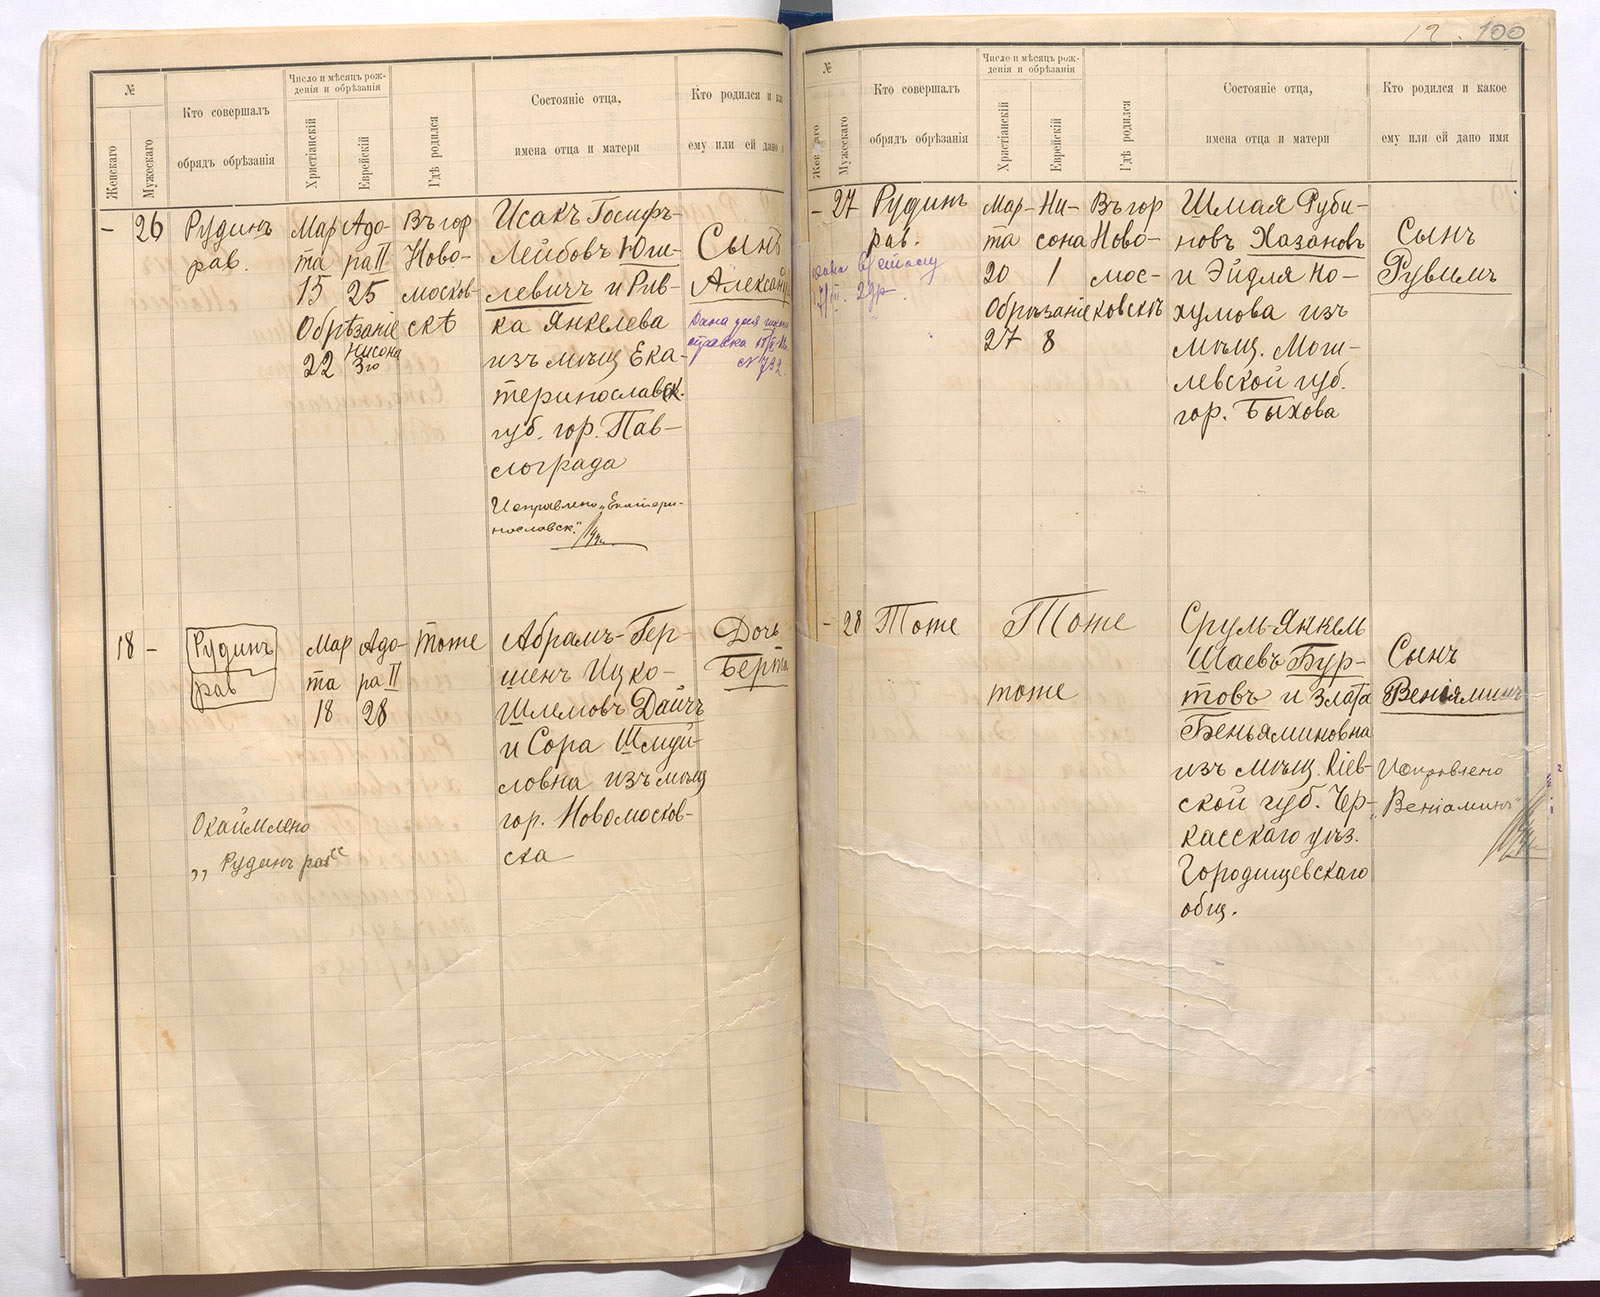 №
Женскаго
Мужескаго
Кто совершалъ
обрядъ обрѣзанія
Число и мѣсяцъ рож-
денія и обрѣзанія
Христіанскій
Еврейскій
Гдѣ родился
Состояніе отца,
имена отца и матери
Кто родился и ка
ему или ей дано
– 26
Рудинъ
рав.
Мар
та
15
Обрѣзаніе
22
Адо-
ра II
25
Нисона
3го
Въ гор
Ново-
москов-
скѣ
Исакъ Госифъ-
Лейбовъ Юги-
левичъ и Рив-
ка Янкелева
изъ мѣщ Ека-
теринославск.
губ. гор. Пав-
лограда
Исправлено „Екатери-
нославск."
Сынъ
Александ
Дана
справка
№ 792.
18 –
Рудинъ
рав
Мар
та
18
Адо-
ра II
28
тоже
Абрамъ-Гер-
шенъ Ицко-
Шлемовъ Дайчъ
и Сора Шмуй-
ловна изъ мѣщ
гор. Новомосков-
ска
Дочь
Берта
Окаймлено
„Рудинъ рав"
12. 100
№
Женскаго
Мужескаго
Кто совершалъ
обрядъ обрѣзанія
Число и мѣсяцъ рож-
денія и обрѣзанія
Христіанскій
Еврейскій
Гдѣ родился
Состояніе отца,
имена отца и матери
Кто родился и какое
ему или ей дано имя
– 27
Рудинъ
рав.
Мар-
та
20
Обрѣзаніе
27
Ни-
сона
1
8
Въ гор
Ново-
мос-
ковскѣ
Шмая Руби-
новъ Хазановъ
и Эйдля Но-
хумова изъ
мѣщ. Моги-
левской губ.
гор. Быхова
Сынъ
Рувимъ
– 28
Тоже
Тоже
тоже
Сруль-Янкель
Шаевъ Бур-
товъ и Злата
Беньяминовна
изъ мѣщ. Кіев-
ской губ. Чер-
касскаго уѣз.
Городищевскаго
общ.
Сынъ
Веніяминъ
Исправлено
„Веніаминъ"